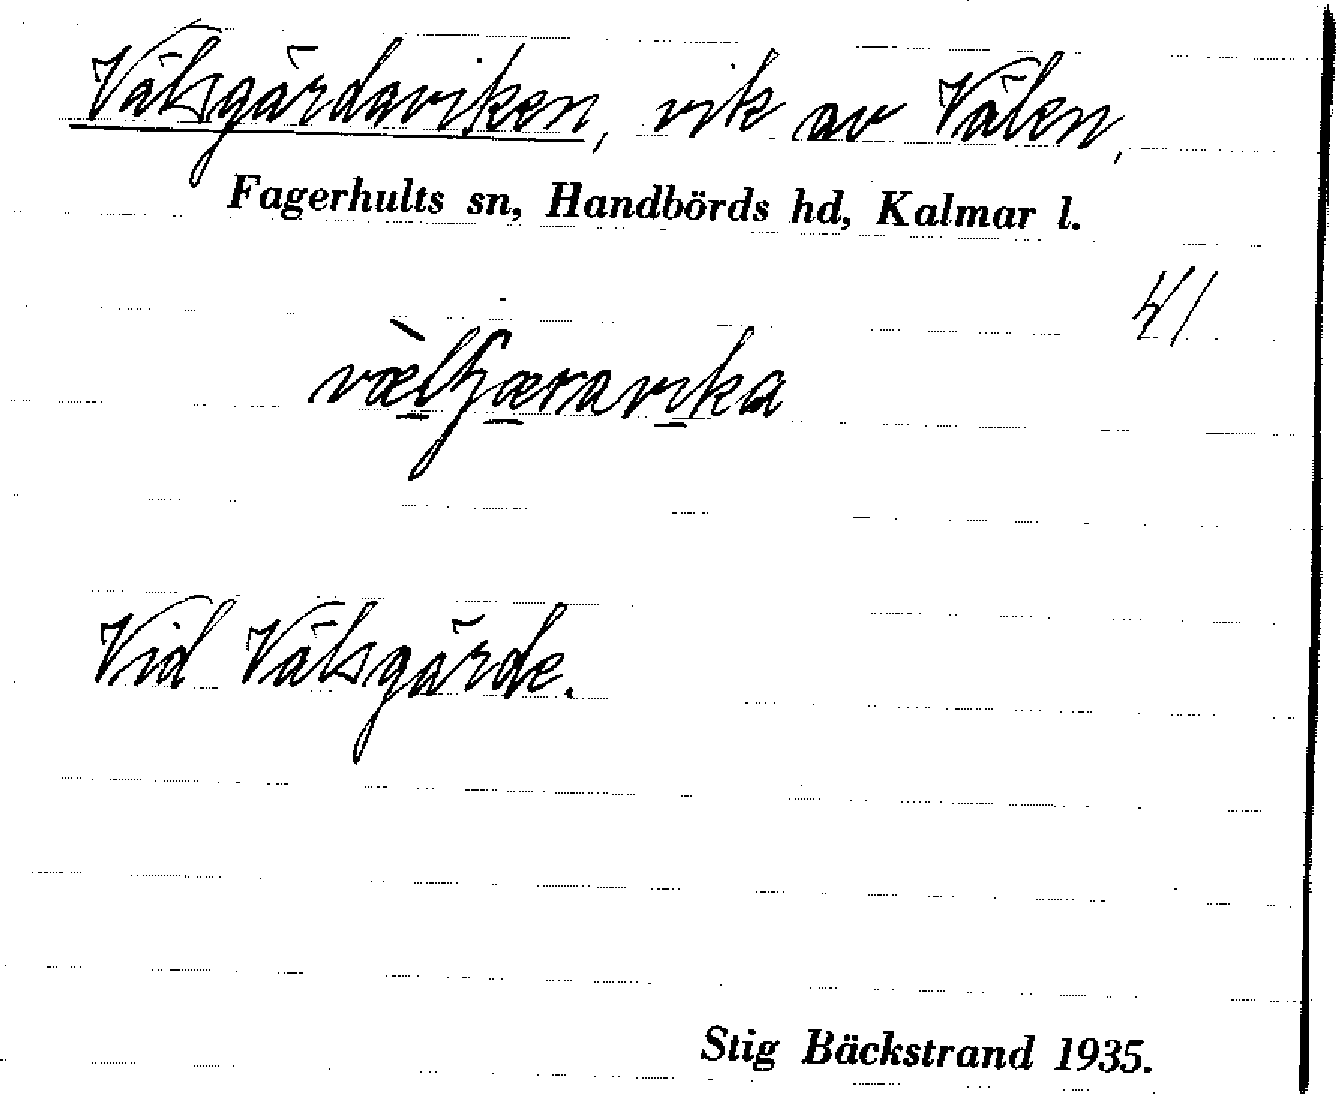 Välsgärdaviken, vik av Välen,
Fagerhults sn, Handbörds hd, Kalmar l.
41
Vid Välsgärde.
Stig Bäckstrand 1935.